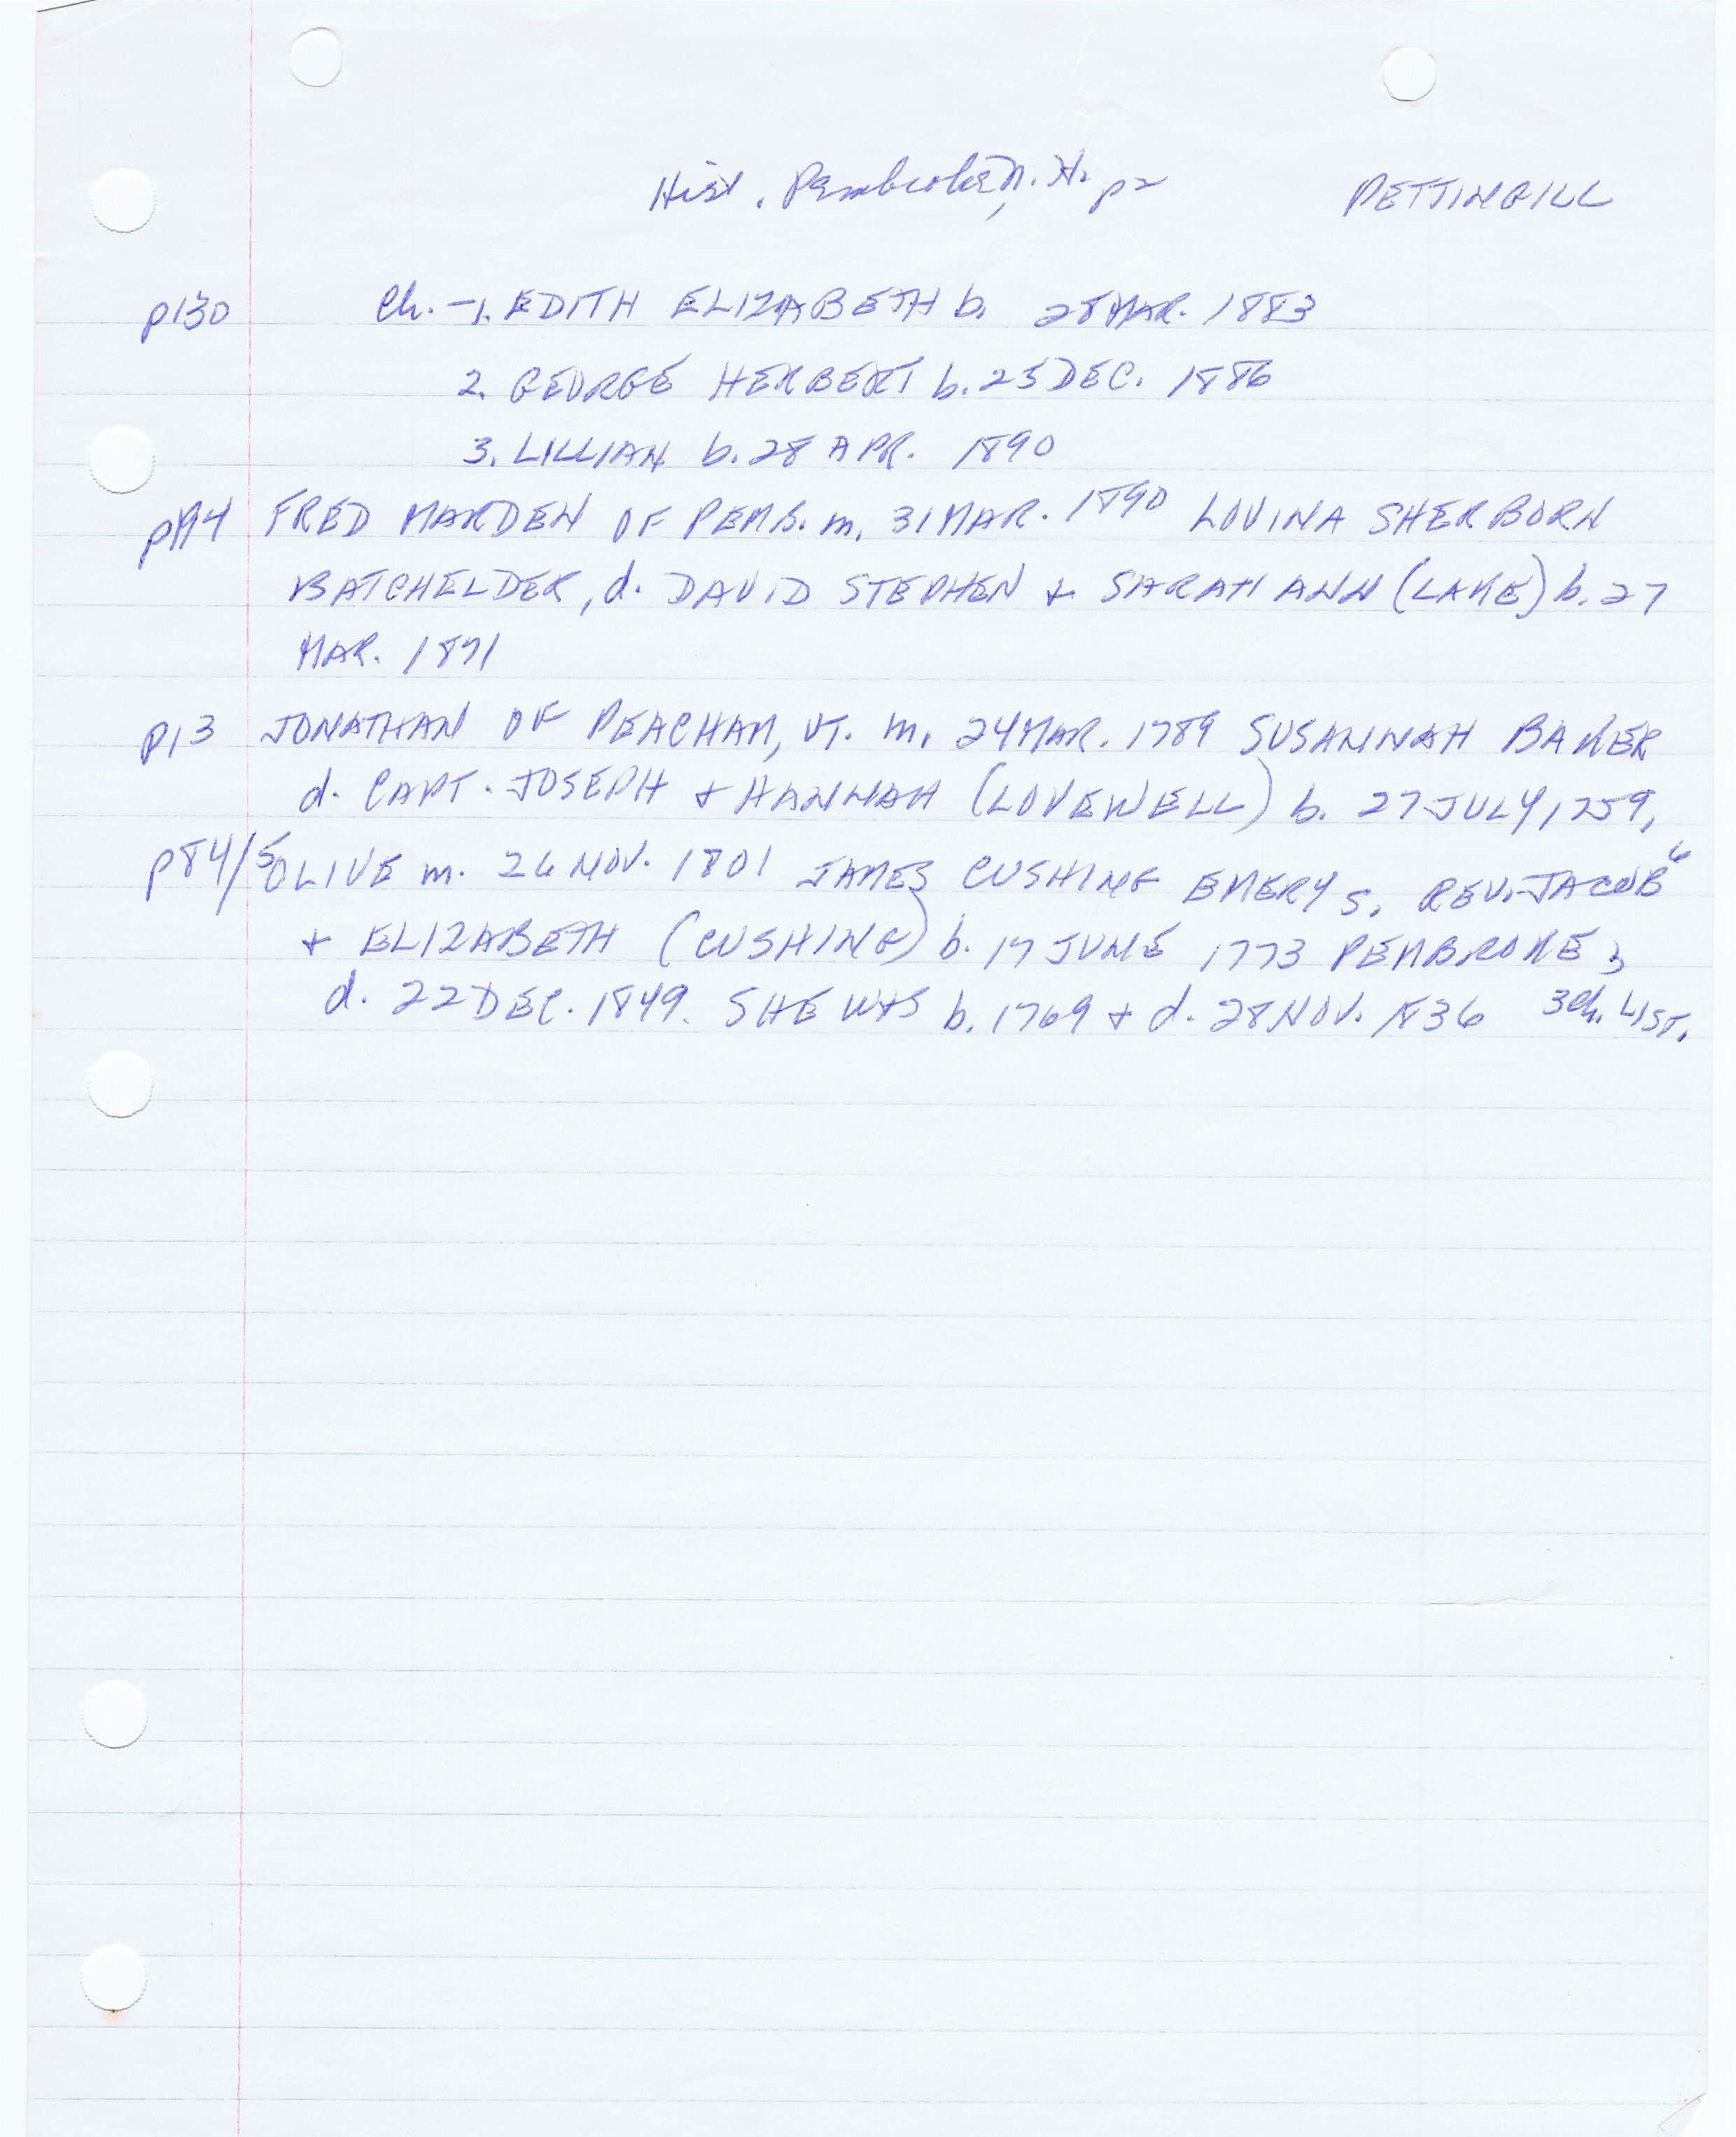 Hist. Pembroke, N.H. p2 PETTINGILL
p130 Ch. - 1. EDITH ELIZABETH b. 28 MAR. 1883
2. GEORGE HERBERT b. 25 DEC. 1886
3. LILLIAN b. 28 APR. 1890
FRED MARDEN OF PEMB. m. 31 MAR. 1890 LOVINA SHERBORN
BATCHELDER, d. DAVID STEPHEN + SARAH ANN (LAKE) b. 27
MAR. 1871
p13 JONATHAN OF PEACHAM, VT. m. 24 MAR. 1789 SUSANNAH BAKER
d. CAPT. JOSEPH + HANNAH (LOVEWELL) b. 27 JULY, 1759,
p84/5 OLIVE m. 26 NOV. 1801 JAMES CUSHING EMERY s. REV. JACOB 6
+ ELIZABETH (CUSHING) b. 17 JUNE 1773 PEMBROKE;
d. 22 DEC. 1849. SHE WAS b. 1769 + d. 28 NOV. 1836 3 ch. LIST.